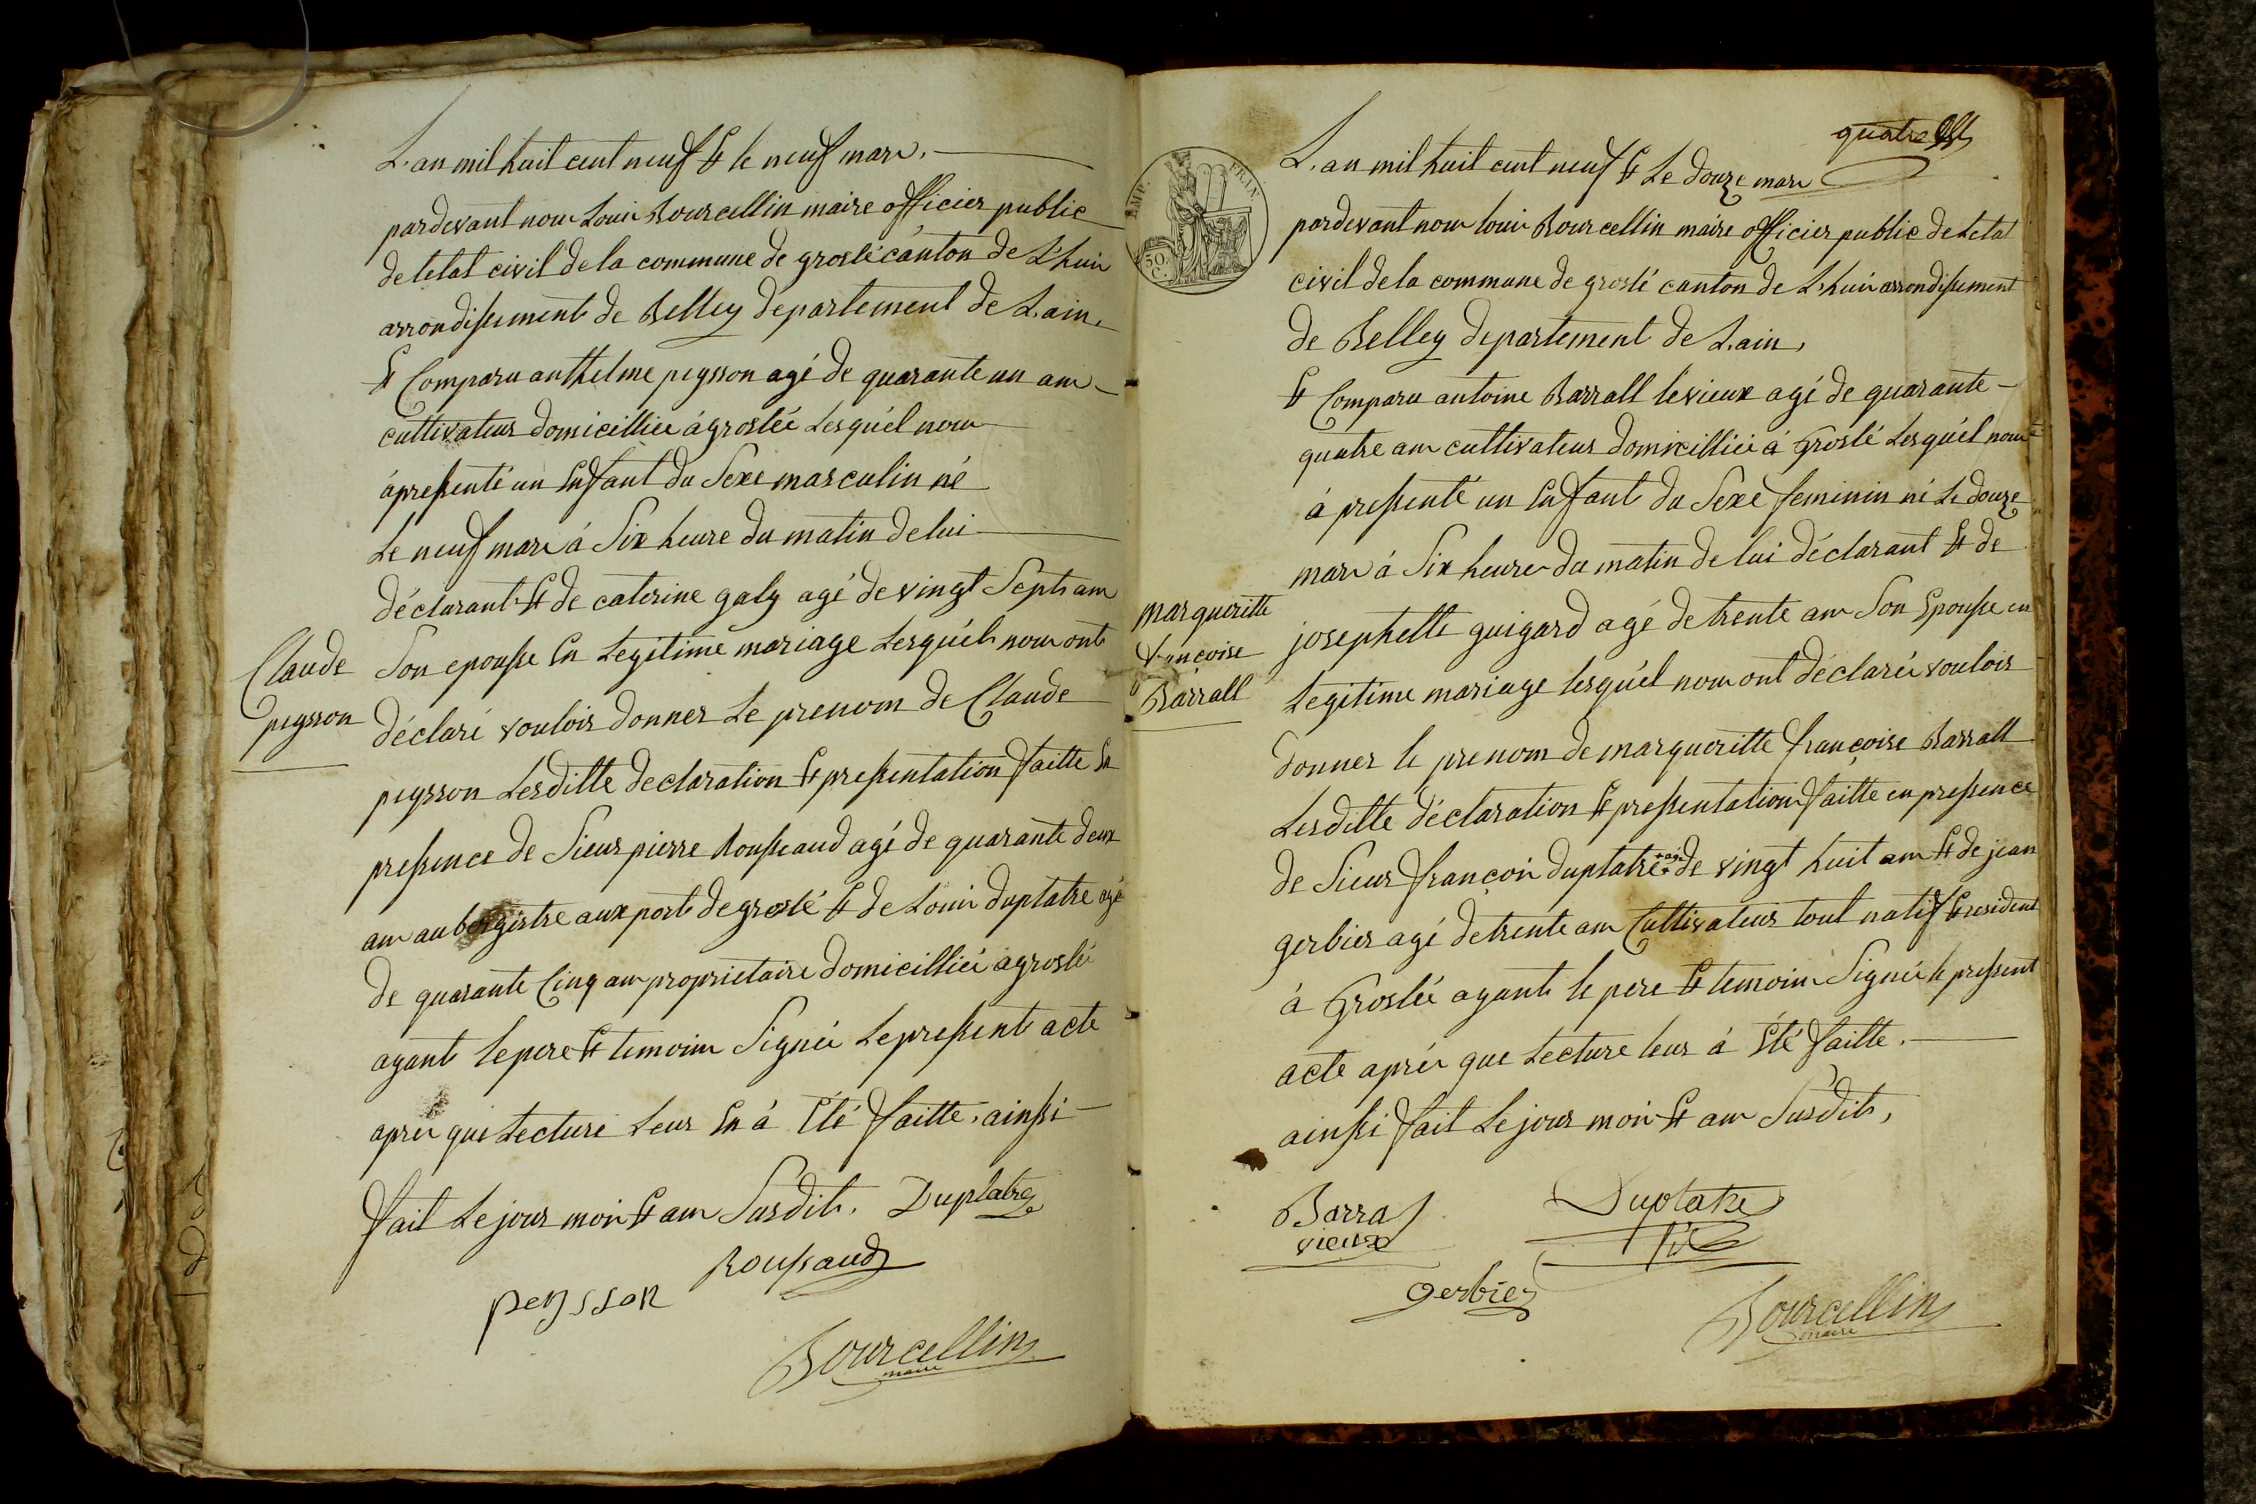 L'an mil huit cent neuf & le neuf mars.
pardevant nous Louis Bourcellin maire officier public
de letat civil de la commune de groslé canton de L'huis
arrondissement de Belley departement de L'ain,
& Comparu anthelme peysson agé de quarante un ans
cultivateur domicilliée á groslée Lesquél nous
á pressenté un Enfant du Sexe masculin né
Le neuf mars á Six heure du matin de lui
déclarant & de caterine galy agé de vingt Septs ans
Claude
peysson
Son epousse En Legitime mariage Lesquéls nous onts
déclaré vouloir donner Le prenom de Claude
peysson Lesditte declaration & pressentation faitte En
pressence de Sieur pierre Rousseaud agé de quarante deux
ans aubergistre aux port de groslé & de Louis duplatre agé
de quarante Cinq ans proprietaire domicilliéé a groslée
ayants le pere & temoins Signée Le pressent acte
aprés que Lecture Leur En á Eté faitte, ainssi
fait Le jour mois & ans Susdits, Duplatre
Roussaud
peysson
Bourcellin
maire
quatre
EMP. FRAN.
50.
C.
L'an mil huit cent neuf & Le douze mars
pardevant nous louis Bourcellin maire officier public de Letat
civil de la commune de groslé canton de L'huis arrondissement
de Belley departement de L'ain,
& Comparu antoine Barrall le vieux agé de quarante
quatre ans cultivateur domicilliéé á Groslé Lesquél nous
á pressenté un Enfant du Sexe feminin né Le douze
mars á Six heures du matin de lui déclarant & de
margueritte
françoise
Barrall
josephette guigard agé de trente ans Son Epousse en
Legitime mariage lesquél nous ont déclarée vouloir
donner le prenom de margueritte françoise Barrall
Lesditte déclaration & pressentation faitte en pressence
de Sieur françois duplatre agé de vingt huit ans & de jean
gerbier agé de trente ans Cultivateur tout natif & resident
á Groslée ayants le pere & temoins Signée le pressent
acte aprés que Lecture leur á Eté faitte.
ainssi fait Le jour mois & ans Susdits,
Barral
vieux
Duplatre
fils
gerbier
Bourcellin
maire